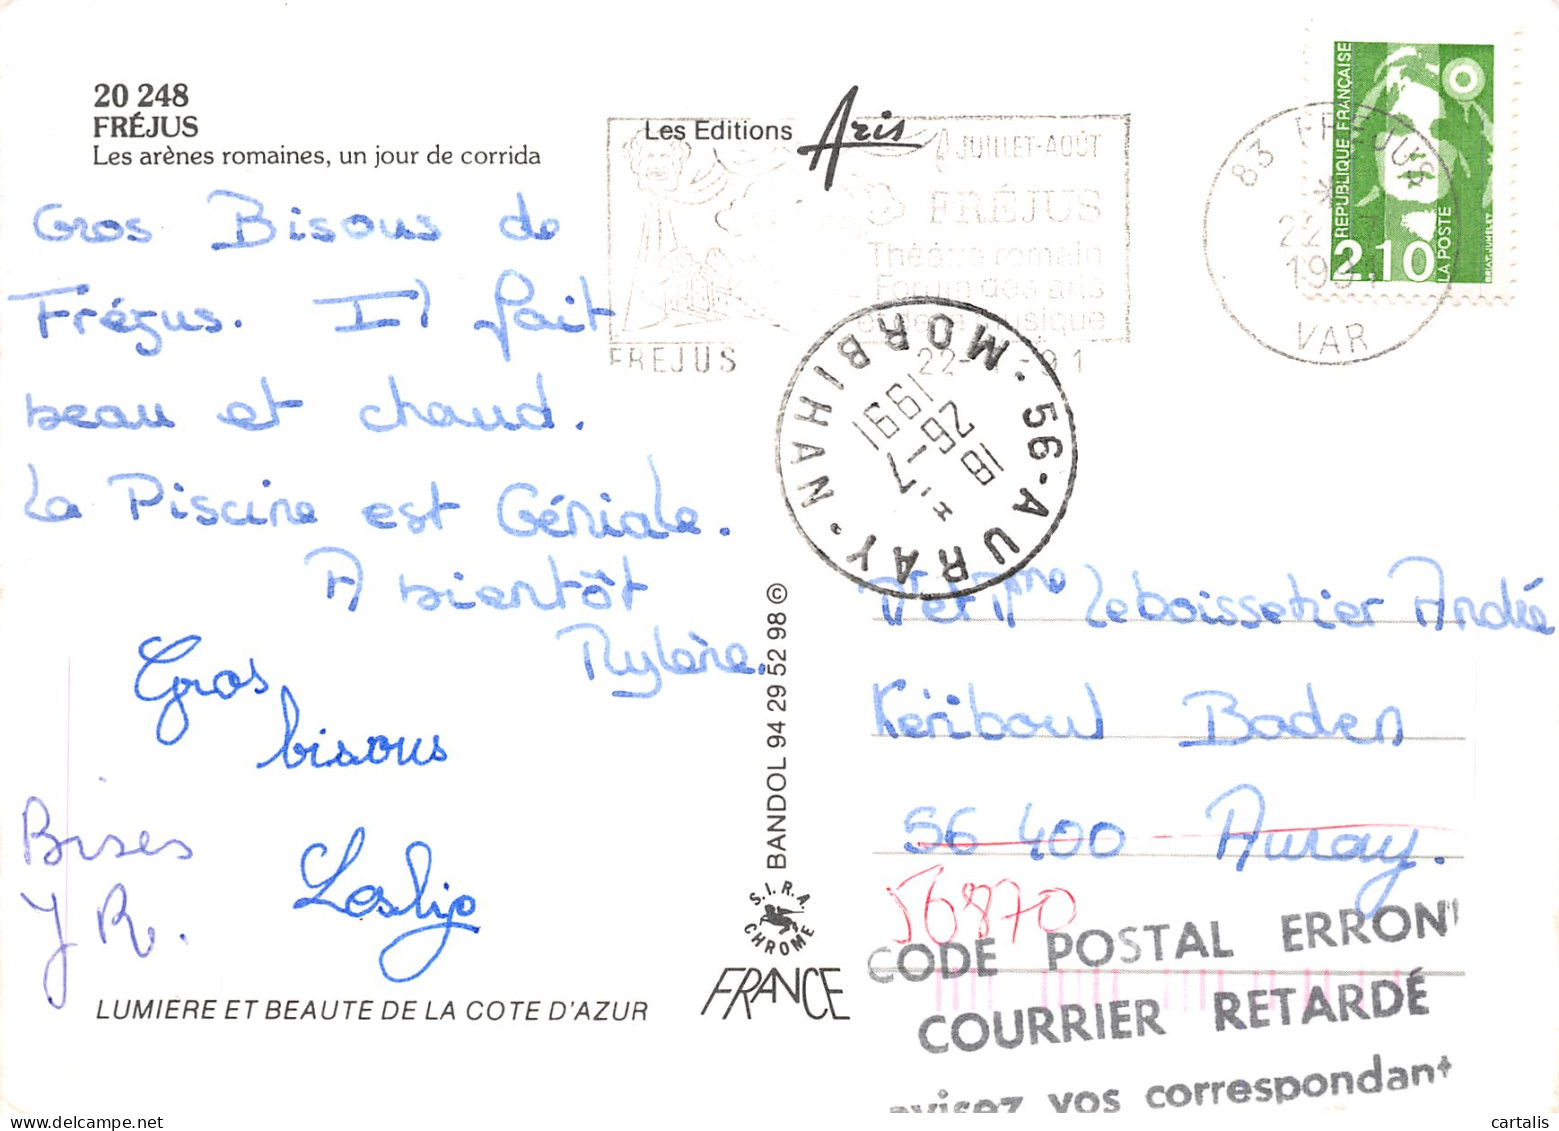 20 248
FRÉJUS
Les arènes romaines, un jour de corrida
Les Editions Aris
JUILLET-AOÛT
FRÉJUS
Théâtre romain
Forum des arts
et de la musique
FREJUS 22-7-91
83 FREJUS
22-7
1991
VAR
REPUBLIQUE FRANÇAISE
2,10
LA POSTE
56-AURAY·MORBIHAN
18 H
26-7
1991
Gros Bisous de
Fréjus. Il fait
beau et chaud.
La Piscine est Géniale.
A bientôt
Mylène.
Gros
bisous
Bises
JR.
LUMIÈRE ET BEAUTE DE LA COTE D'AZUR
BANDOL 94 29 52 98 ©
S.I.R.A.
CHROME
FRANCE
Mr et Mme Leboissetier Andrée
Keriboul Baden
56 400 Auray.
56870
CODE POSTAL ERRON
COURRIER RETARDÉ
avisez vos correspondant
cartalis